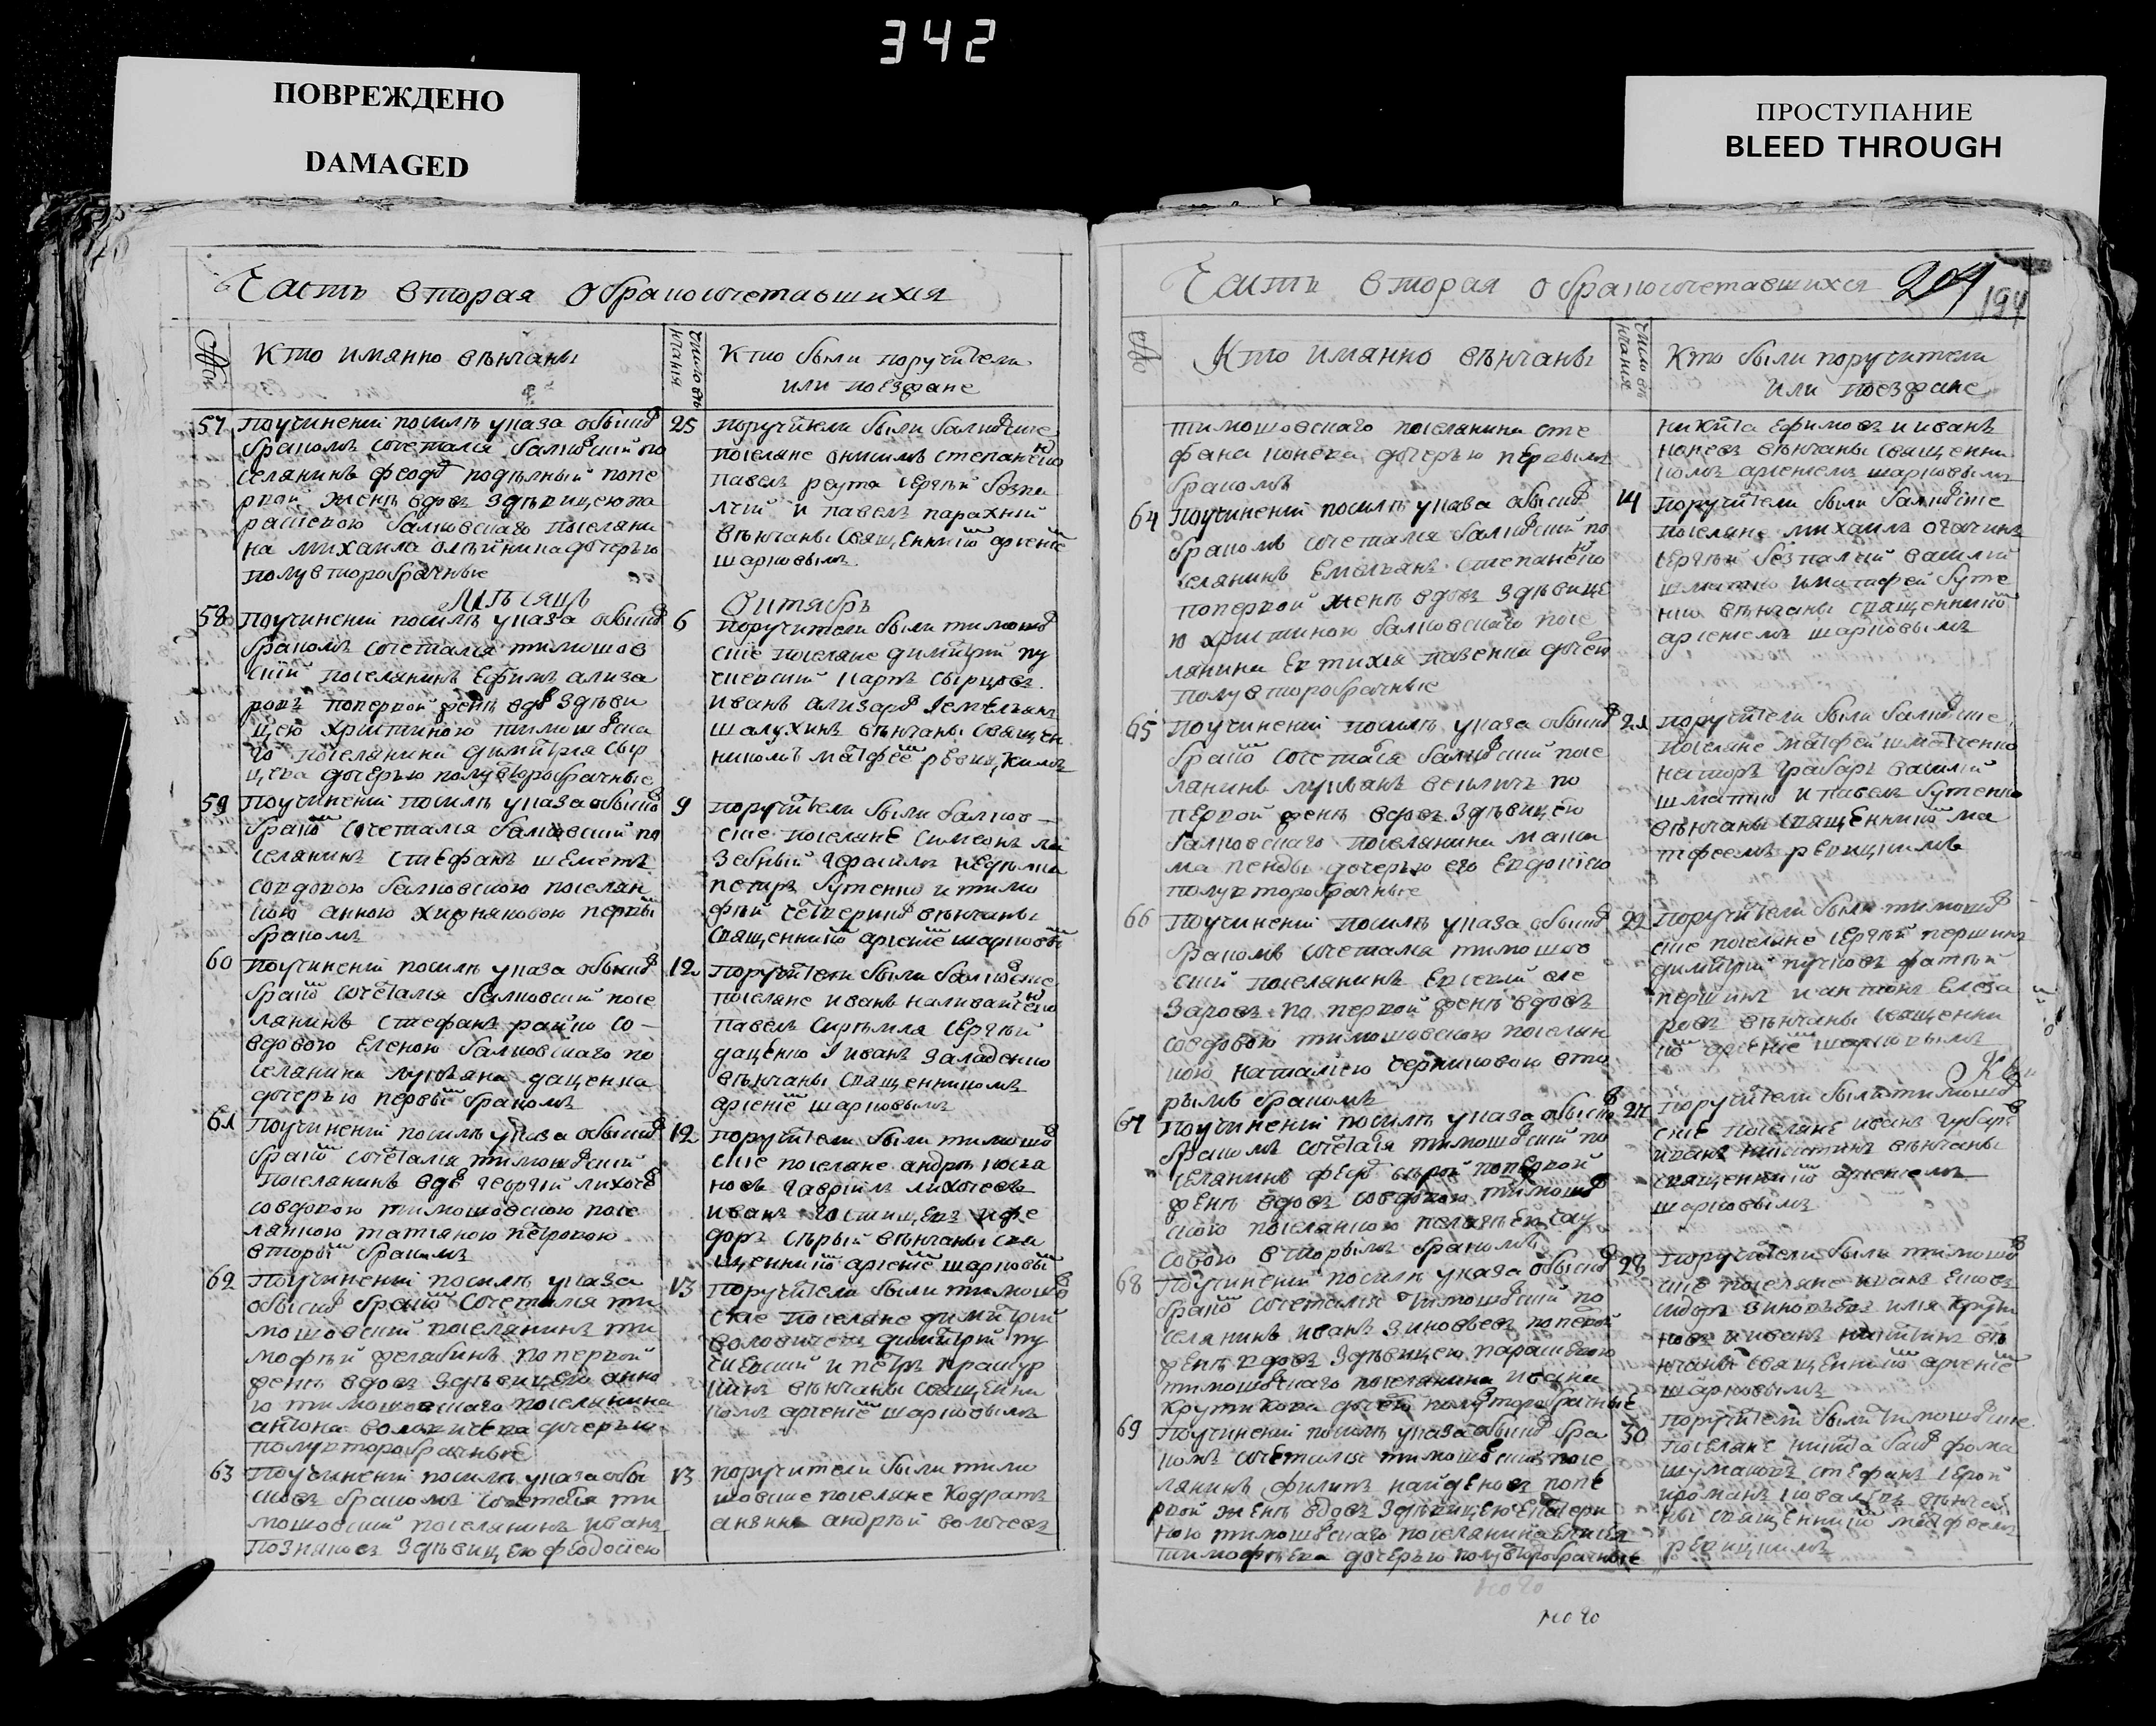 342
ПОВРЕЖДЕНО
DAMAGED
ПРОСТУПАНИЕ
BLEED THROUGH
Часть вторая о бракосочетавшихся
Кто имянно вѣнчаны
Число вѣн
чания
Кто были поручители
или поезжане
57 По учинениї по силѣ указа обыско
бракомъ сочетался балковский по
селянинъ феодо подѣлный попе
рвой женѣ вдовъ здѣвицею па
раскевою балковскаго поселяни
на михаила олѣйника дочерью
полувторобрачные
25 поручители были балковские
поселяне онисимъ степаненко
павелъ реута сергѣй безпа
лчий и павелъ парахний
вѣнчаны священнико арсение
шарковымъ
Мѣсяцъ Октябрь
58 По учинениї по силѣ указа обыско
бракомъ сочетался тимошов
ский поселянинъ Ефимъ ализа
ровъ попервой женѣ вдо здѣви
цею христиною тимошовска
го поселянина димитрия сыр
цева дочерью полувторобрачные
6 поручители были тимошо
ские поселяне димитрий пу
чевский карпъ сырцовъ
иванъ ализаро Iемелианъ
шалухинъ вѣнчаны священ
никомъ матфее ревицкимъ
59 По учинениї по силѣ указа обыско
брако сочетался балковский по
селянинъ стефанъ шеметъ
совдовою балковскою поселян
кою анною хирняковою первы
бракомъ
9 поручители были балков
ские поселяне симеонъ ла
забный герасимъ недѣлка
петръ бутенко и тимо
фѣй четверико вѣнчаны
священнико арсение шарковы
60 По учинениї по силѣ указа обыско
брако сочетался балковский посе
лянинъ стефанъ райко со
вдовою Еленою балковскаго по
селянина лукьяна даценка
дочерью первы бракомъ
12 поручители были балковские
поселяне иванъ наливайченко
павелъ сиремля сергѣй
даценко Iиванъ заладенко
вѣнчаны священникомъ
арсение шарковымъ
61 По учинениї по силѣ указа обыско
брако сочетался тимошовский
поселянинъ вдо георгий лихоче
совдовою тимошовскою посе
лянкою татианою петровою
вторы бракомъ
12 поручители были тимошо
ские поселяне андрѣ коста
новъ гаврiилъ лихочевъ
иванъ гостищевъ ифе
доръ сѣрый вѣнчаны свя
щеннико арсение шарковы
62 По учинениї по силѣ указа
обыско брако сочетался ти
мошовский поселянинъ ти
мофѣй желабинъ поперво
женѣ вдовъ здѣвицею анно
ю тимошовскаго поселянина
антона воловичева дочерью
полувторобрачные
13 поручители были тимошо
ские поселяне димитрий
воловичевъ димитрий пу
чевский и петръ крашур
кинъ вѣнчаны священни
комъ арсение шарковымъ
63 По учинениї по силѣ указа обы
сковъ бракомъ сочетался ти
мошовский поселянинъ иванъ
познаковъ здѣвицею феодосиею
13 поручители были тимо
шовские поселяне Кодратъ
ананинъ андрѣй волочевъ
Часть вторая о бракосочетавшихся 204
194
Кто имянно вѣнчаны
Число вѣн
чания
Кто были поручители
или поезжане
тимошовскаго поселянина сте
фана конева дочерью первымъ
бракомъ
никита Ефимовъ и иванъ
коневъ вѣнчаны священни
комъ арсениемъ шарковымъ
64 По учинениї по силѣ указа обыско
бракомъ сочетался балковский по
селянинъ Емелиянъ степаненко
поперво женѣ вдовъ здѣвице
ю христиною балковскаго посе
лянина Евтихия павенка дочею
полувторобрачные
14 поручители были балковские
поселяне михаилъ
сергѣй безпалчий василий
шматко иматфей буте
нко вѣнчаны священнико
арсениемъ шарковымъ
65 По учинениї по силѣ указа обыско
брако сочетался балковский посе
лянинъ лукианъ величъ по
первой женѣ вдовъ здѣвицею
балковскаго поселянина макси
ма пенды дочерью его Евдокиею
полувторобрачные
21 поручители были балковские
поселяне матфей шматченко
никторъ грабаръ василий
шматко и павелъ бутенко
вѣнчаны священнико ма
тфеемъ ревицкимъ
66 По учинениї по силѣ указа обыско
бракомъ сочетался тимошов
ский поселянинъ Евсевий еле
заровъ по первой женѣ вдовъ
совдовою тимошовскою поселян
кою наталиею черниковою вто
рымъ бракомъ
22 поручители были тимошо
ские поселяне сергѣй першинъ
димитрий пучковъ фатѣй
першинъ и антонъ елеза
ровъ вѣнчаны священни
ко арсение шарковымъ
67 По учинениї по силѣ указа обыско
бракомъ сочетался тимошовский по
селянинъ феодо сѣрой поперво
женѣ вдовъ совдовою тимошо
скою поселянкою пелагѣею сау
совою вторымъ бракомъ
24 поручители были тимошо
ские поселяне иванъ губаре
иванъ никитинъ вѣнчаны
священнико арсениемъ
шарковымъ
68 По учинениї по силѣ указа обыско
брако сочетался тимошовский по
селянинъ иванъ зиновьевъ поперво
женѣ вдовъ здѣвицею парасковою
тимошовскаго поселянина ивана
крутикова дочею полувторобрачные
28 поручители были тимошо
ские поселяне иванъ
сидоръ зиновьевъ илия крути
ковъ и иванъ никитинъ вѣ
нчаны священнико арсение
шарковымъ
69 По учинениї по силѣ указа обыско бра
комъ сочетался тимошовский посе
лянинъ филипъ найденовъ попе
рвой женѣ вдовъ здѣвицею Екатери
ною тимошовскаго поселянина Елисея
тимофѣева дочерью полувторобрачные
30 поручители были тимошовские
поселяне никита фома
шумаковъ стефанъ серой
ироманъ ковалевъ вѣнча
ны священнико матфеемъ
ревицкимъ